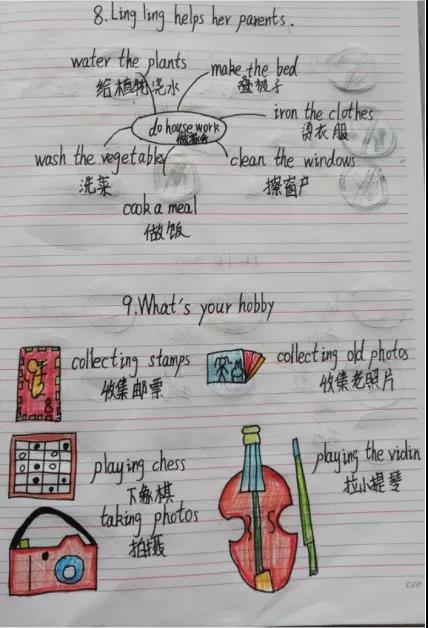 8. Ling ling helps her parents.
water the plants
给植物浇水
make the bed
叠被子
do housework
做家务
iron the clothes
烫衣服
wash the vegetables
洗菜
clean the windows
擦窗户
cook a meal
做饭
9. What's your hobby
collecting stamps
收集邮票
collecting old photos
收集老照片
playing chess
下象棋
playing the violin
拉小提琴
taking photos
拍摄